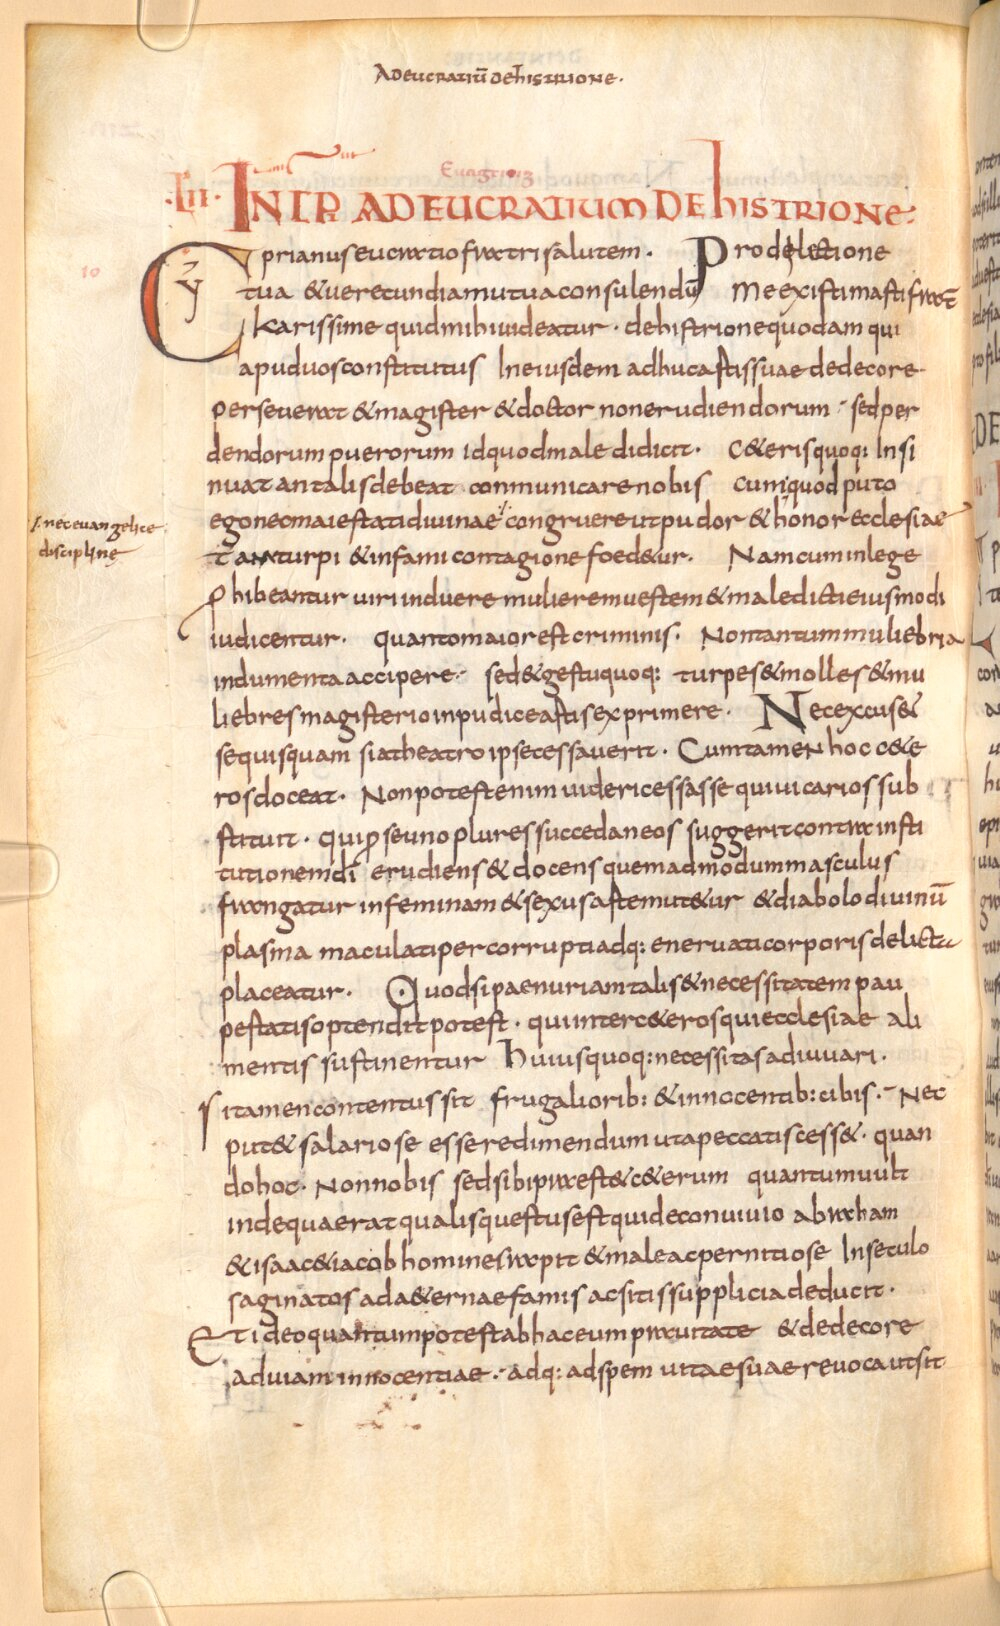 Ad eucratiū de histrione.
Euagtio 13
·LII· INCP AD EUCRATIUM DE hISTRIONE:
10
Cyprianus eucratio fratri salutem. Pro dilectione
tua & uerecundia mutua consulendū me existimasti frat̄
karissime quid mihi uideatur · de histrione quodam qui
apud uos constitutus In eiusdem adhuc astis suae dedecore
perseuerat & magister & doctor non erudiendorum · sed per
dendorum puerorum id quod male didicit · c&erisquoq: Insi
nuat an talis debeat conmunicare nobis cum quod puto
ego nec maiestati diuinae ⁒ congruere ut pudor & honor ecclesiae
⁒ nec euangelice
discipline
tam turpi & infami contagione foed&ur. Nam cum in lege
p̱hibeantur uiri induere mulierem uestem & maledicti eiusmodi
iudicentur. quanto maior est criminis. Non tantum muliebria
indumenta accipere· sed & gestu quoq: turpes & molles & mu
liebres magisterio inpudice astis exprimere. Nec excus&
se quisquam si a theatro ipse cessauerit. Cum tamen hoc c&e
ros doceat. Non potest enim uideri cessasse qui uicarios sub
stituit. qui p̱se uno plures succedaneos suggerit contra insti
tutionem dī erudiens & docens quemadmodum masculus
frangatur in feminam & sexus aste mut&ur & diabolo diuinū
plasma maculati per corrupti adq: eneruati corporis delicta
placeatur. Quod si paenuriam talis & necessitatem pau
pestatis optendit potest · qui inter c&eros qui ecclesiae ali
mentis sustinentur huius quoq: necessitas adiuuari.
si tamen contentus sit frugaliorib: & innocentib: cibis. Nec
put& salario se esse redimendum ut a peccatis cess&. quan
do hoc. Non nobis sed sibi praest& c&erum quantum uult
inde quaerat qualis questus est qui de conuiuio abraham
& isaac & iacob homines rapit & male ac pernitiose In seculo
saginatos ad a&ernae famis ac sitis supplicia deducit.
Et ideo quantum potest ab hac eum prauitate & dedecore
ad uiam innocentiae · adq: ad spem uitae suae reuoca ut sit